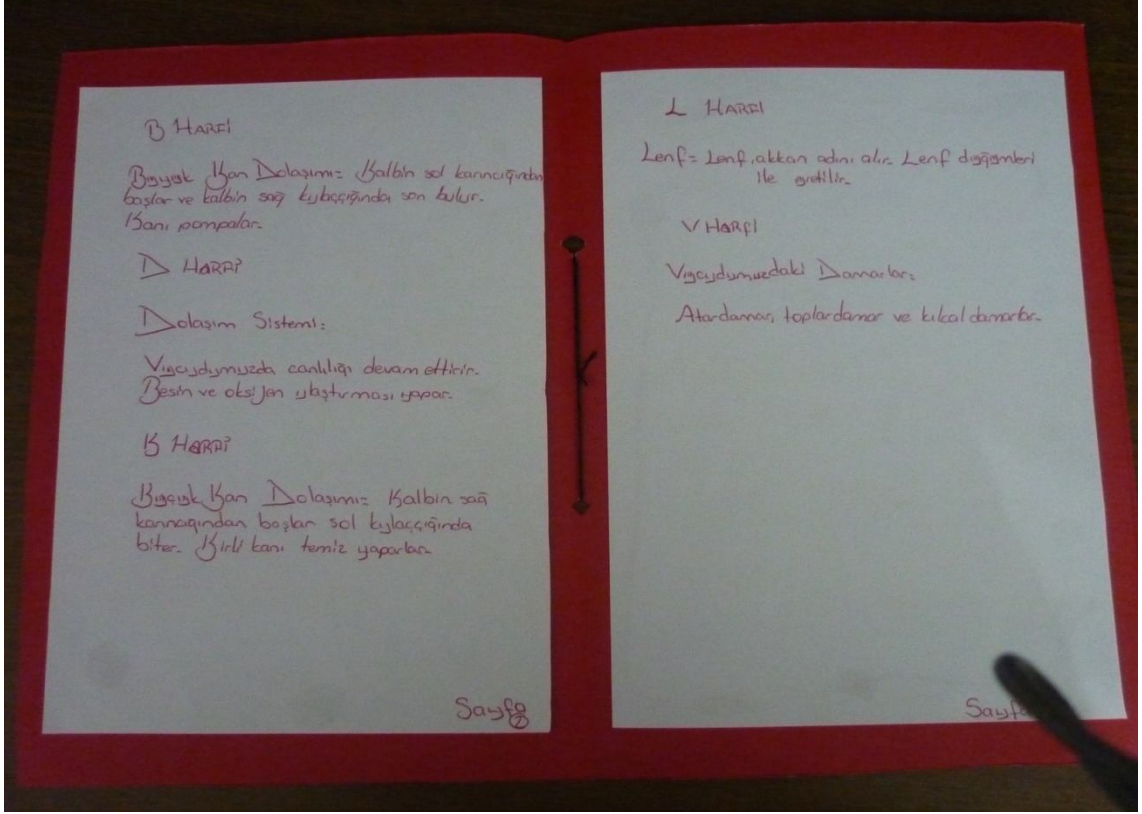 B HARFİ
Büyük Kan Dolaşımı= Kalbin sol karıncığından
başlar ve kalbin sağ kulaçcığında son bulur.
Kanı pompalar.
D HARFİ
Dolaşım Sistemi:
Vücudumuzda canlılığı devam ettirir.
Besin ve oksijen ulaştırması yapar.
K HARFİ
Küçük Kan Dolaşımı= Kalbin sağ
karıncağından başlar sol kulaççığında
biter. Kirli kanı temiz yaparlar.
Sayfa 2
L HARFİ
Lenf= Lenf, akkan adını alır. Lenf düğümleri
ile üretilir.
V HARFİ
Vücudumuzdaki Damarlar:
Atardamar, toplardamar ve kılcal damarlar.